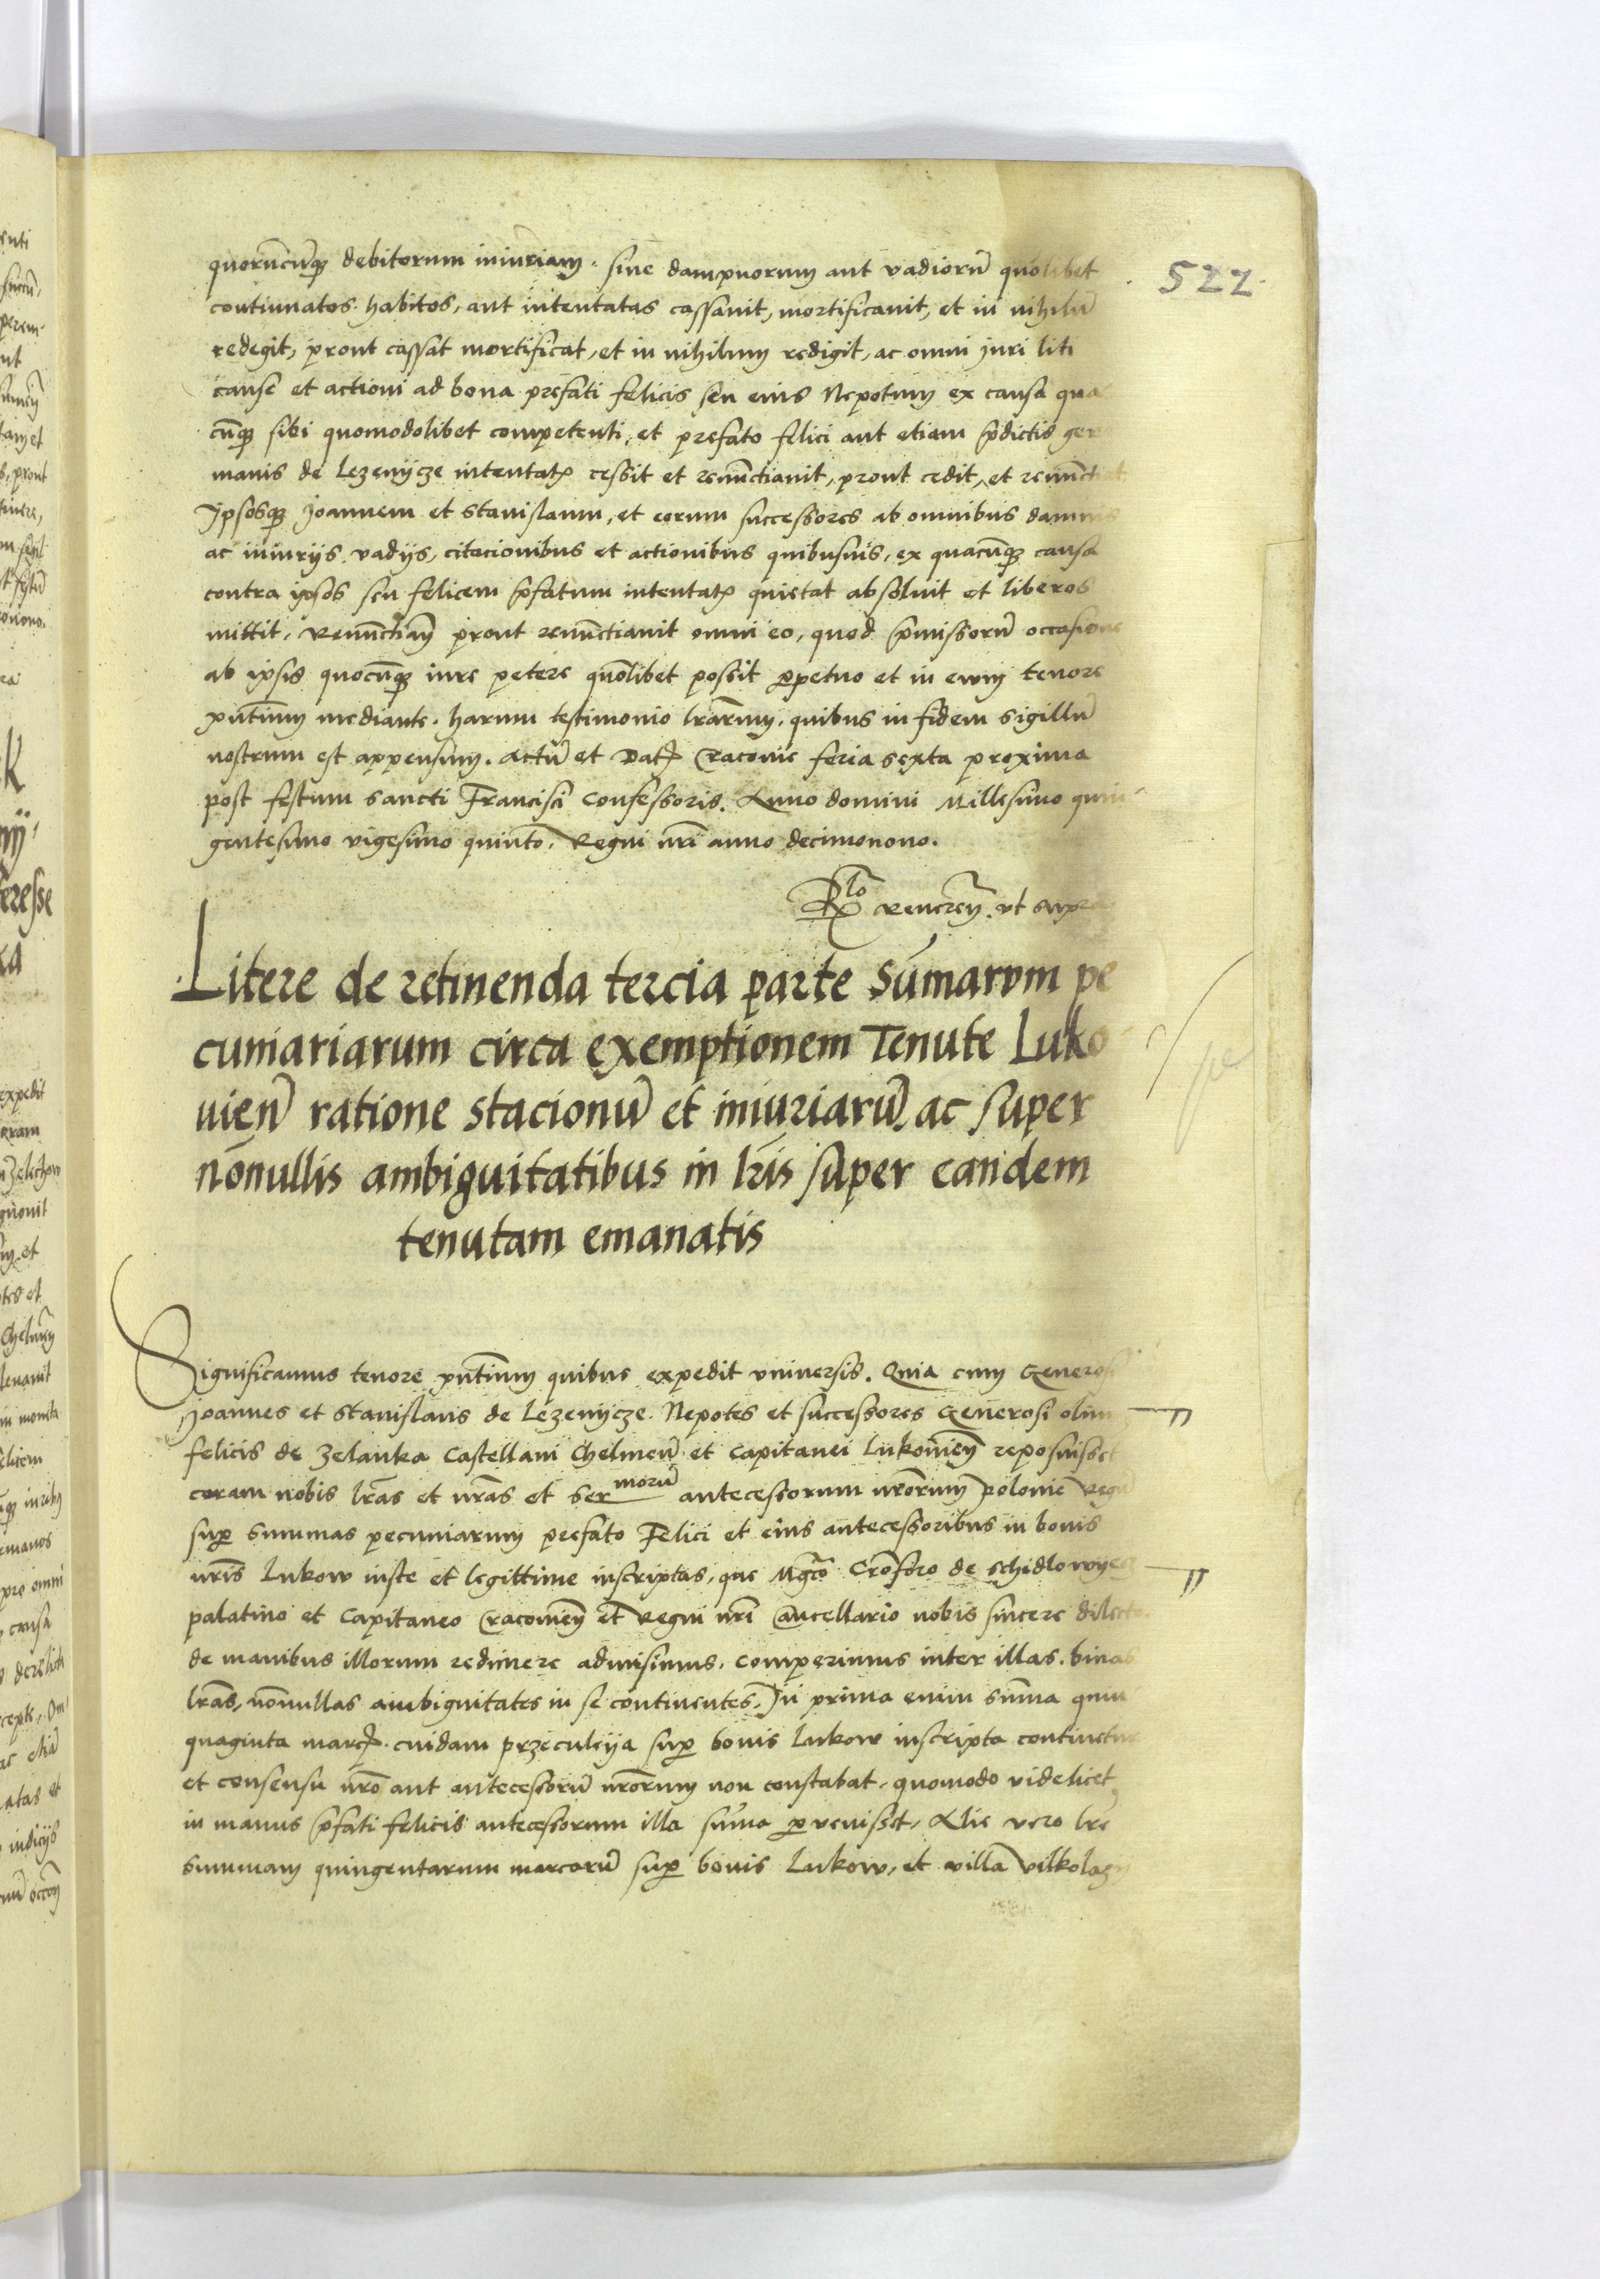 522
quorūcūq; debitorum iniuriam. siue dampnorum aut vadiorū quolibet
continuatos. habitos, aut intentatas cassauit, mortificauit, et in nihilū
redegit, prout cassat mortificat, et in nihilum redigit, ac omni juri liti
cause et actioni ad bona prefati felicis seu eius Nepotum ex causa qua
cūq; sibi quomodolibet competenti, et prefato felici aut etiam p̄dictis ger
manis de Lezenijcze intentat̄ cessit et renūctiauit, prout cedit, et renūctiat
Ipsosq; Joannem et stanislaum, et eorum successores ab omnibus damnis
ac iniurijs vadijs, citacionibus et actionibus quibusuis, ex quacūq; causa
contra ipsos seu felicem p̄fatum intentat̄ quietat absoluit et liberos
mittit, Renūctian̄ prout renūctiauit omni eo, quod p̄missorū occasione
ab ipsis quocūq; iure petere quōlibet possit perpetuo et in ewm tenore
pn̄tium mediante. harum testimonio lr̄arum, quibus in fidem sigillū
nostrum est appensum. Actū et Dat̄ Cracouie feria sexta proxima
post festum sancti Francisci Confessoris. Anno domini Millesimo quin
gentesimo vigesimo quinto, Regni nr̄i anno decimonono.
Rlō Reueren̄. vt supra
Litere de retinenda tercia parte Sūmarum pe
cuniariarum circa exemptionem Tenute Luko
uien̄ ratione stacionū et iniuriarū, ac super
nōnullis ambiguitatibus in lr̄is super eandem
tenutam emanatis
Significamus tenore pn̄tium quibus expedit vniuersis. Quia cum Generosi
Joannes et stanislaus de Lezenijcze. Nepotes et successores Generosi olim
felicis de Zelanka Castellani Chelmen̄ et Capitanei Lukouien̄ reposuisset
coram nobis lr̄as et nr̄as et Ser morū antecessorum nr̄orum polonie Regū
sup̄ summas pecuniarum prefato Felici et eius antecessoribus in bonis
nr̄is Lukow iuste et legittime inscriptas, que Mgco Crōforo de Schidlowyecz
palatino et Capitaneo Cracouien̄ et Regni nr̄i Cancellario nobis sincere dilecto
de manibus illorum redimere admisimus. Comperimus inter illas. binas
lr̄as, nōnullas ambiguitates in se continentes. In prima enim sūma quin
quaginta marc̄. cuidam przeculeya sup̄ bonis Lukow inscripta continetur
et consensu nr̄o aut antecessorū nr̄orum non constabat, quomodo videlicet
in manus p̄fati felicis antecessorum illa sūma peruenisset, Alie vero lr̄e
summam quingentarum marcarū sup̄ bonis Lukow, et villa vilkolazy